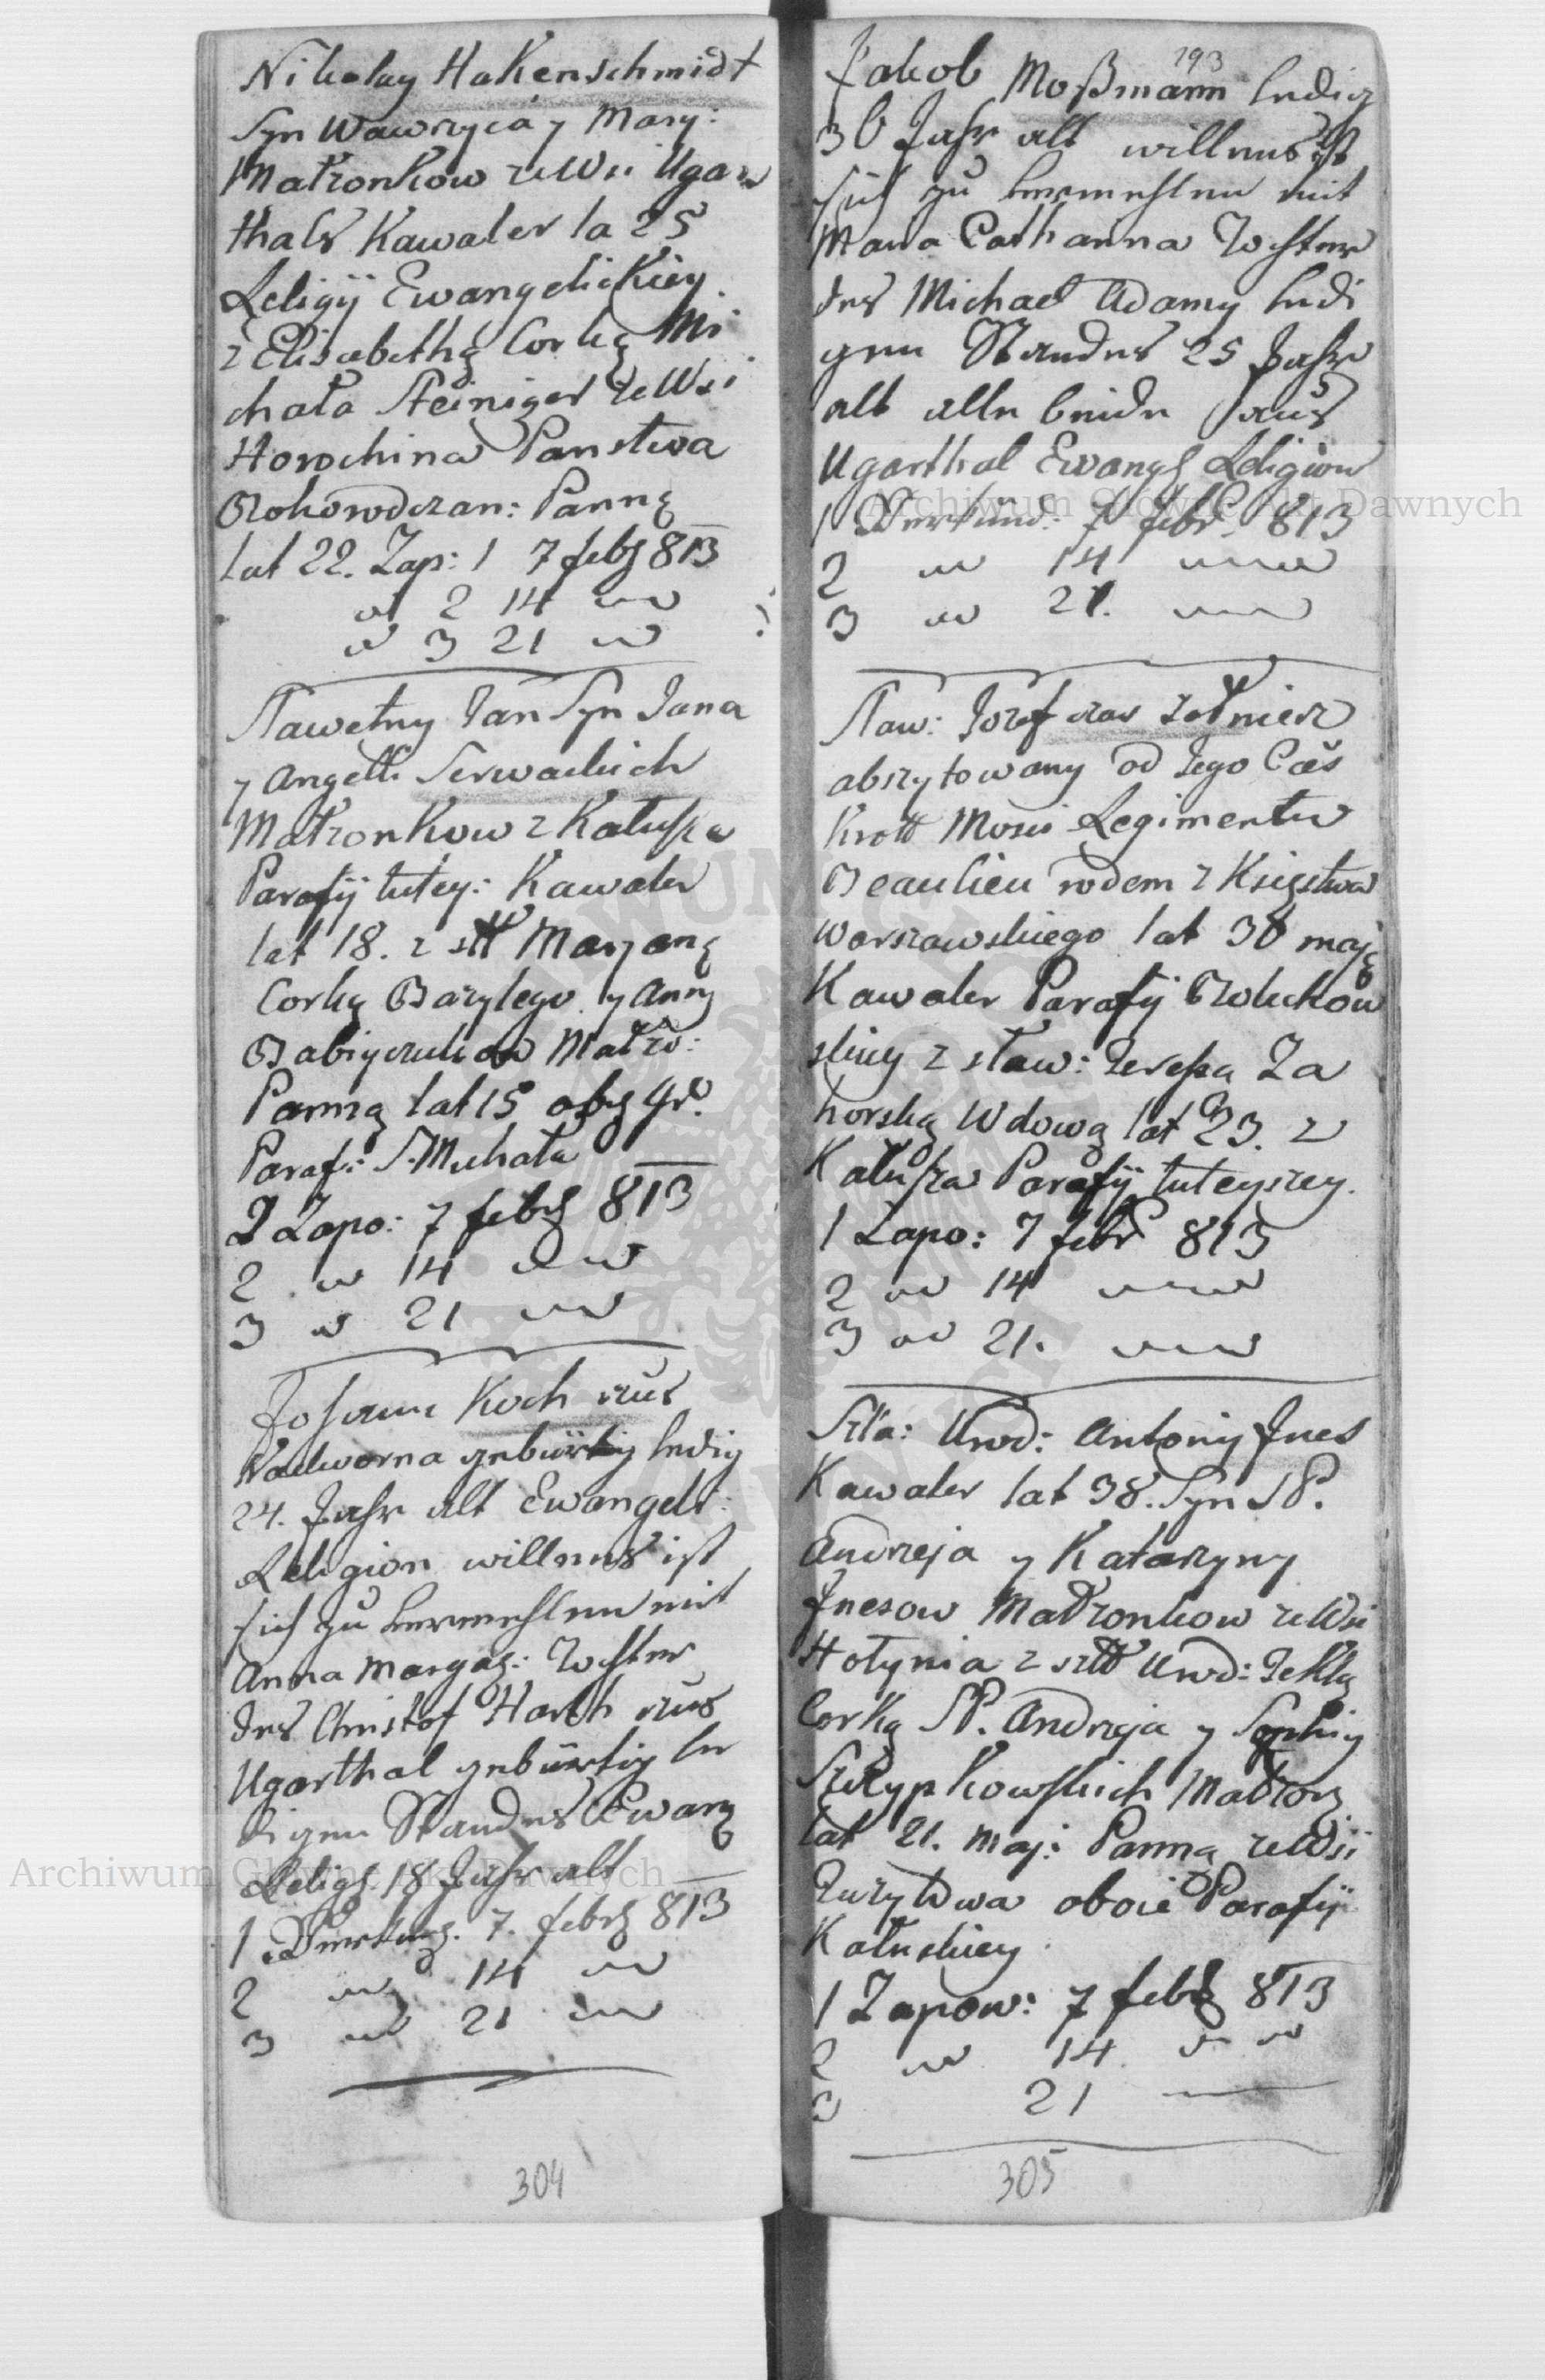 Nikolay Hakenschmidt
Syn Wawrzyca y Mary:
Małzonkow ze Wsi Ugar
thals Kawaler la 25
Religÿ Ewangelickiey
z Elisabethą Corką Mi
chała Steiniger ze Wsi
Horochina Panstwa
Bohorodczan: Panną
lat 22. Zap: 1 7 febr 813
2 14
3 21
Sławetny Jan Syn Jana
y Angelli Serwackich
Małzonkow z Kałusza
Parafÿ tutey: Kawaler
lat 18. z sł Maryaną
Corką Bazylego y Anny
Małzo:
Panną lat 15 obrz gr:
Paraf: S. Michała
1 Zapo: 7 febr 813
2 14
3 21
Johann Koch aus
Nadworna gebürtig ledig
24. Jahr alt Ewangel:
Religion willens ist
sich zu vermehlen mit
Anna Margar: Tochter
des Christof Harth aus
Ugarthal gebürtig le
digen Standes Ewang
Relig: 18 Jahr alt
1 Verkünd. 7. febr 813
2 14
3 21
304
193
Jakob Moßmann ledig
30 Jahr alt willens ist
sich zu vermehlen mit
Maria Catharina Tochter
des Michael Adamy ledi
gen Standes 25 Jahr
alt alle beide aus
Ugarthal Ewang Religion
1 Verkünd: 7 febr. 813
2 14
3 21.
Sław: Jozef żołnierz
abszytowany od Jego Ces
Kroll Mosci Regimentu
Beaulieu rodem z Księstwa
Warszawskiego lat 38 mają
Kawaler Parafÿ
skiey z sław: Teressą Za
horską Wdową lat 23. z
Kałusza Parafÿ tuteyszey.
1 Zapo: 7 febr 813
2 14
3 21.
Szla: Urod: Antoniy Jnes
Kawaler lat 38. Syn SP.
Andrzeja y Katarzyny
Jnesow Małzonkow ze Wsi
Hołynia z szl Urod: Teklą
Corką SP. Andrzeja y Sophiy
Małzon
lat 21. maj: Panną ze Wsi
oboie Parafÿ
Kałuskiey
1 Zapow: 7 febr 813
2 14
3 21
305
Archiwum Główne Akt Dawnych
Archiwum Główne Akt Dawnych